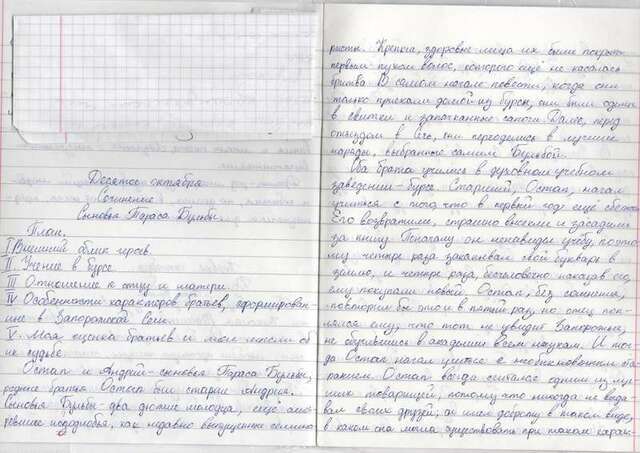 Десятое октября
Сочинение
Сыновья Тараса Бульбы.
План.
I Внешний облик героев.
II. Учение в бурсе.
III Отношение к отцу и матери.
IV Особенности характеров братьев, сформирован-
ные в Запорожской Сечи.
V. Моя оценка братьев и мои мысли об
их судьбе
Остап и Андрий - сыновья Тараса Бульбы,
родные братья. Остап был старше Андрия.
Сыновья Бульбы два дюжие молодца, ещё смот-
ревшие исподлобья, как недавно выпущенные семина-
ристы. Крепкие, здоровые лица их были покрыты
первым пухом волос, которого ещё не касалась
бритва В самом начале повести, когда они
только приехали домой из бурсы, они были одеты
в свитки и запачканные сапоги Далее, перед
отъездом в Сечь, они переоделись в лучшие
наряды, выбранные самим Бульбой.
Оба брата учились в духовном учебном
заведении - бурсе. Старший, Остап, начал
учиться с того, что в первый год ещё сбежал
Его возвратили, страшно высекли и засадили
за книгу. Поначалу он ненавидел учёбу, поэто
му четыре раза закапывал свой букварь в
землю, и четыре раза, бесчеловечно наказав его,
ему покупали новый. Остап, без сомнения,
повторил бы это и в пятый раз, но отец пок-
лялся ему, что тот не увидит Запорожья,
не обучившись в академии всем наукам. И тог
да Остап начал учиться с необыкновенным ста
ранием. Остап всегда считался одним из луч
ших товарищей, потому что никогда не выда
вал своих друзей; он имел доброту в таком виде,
в каком она могла существовать при таком харак-